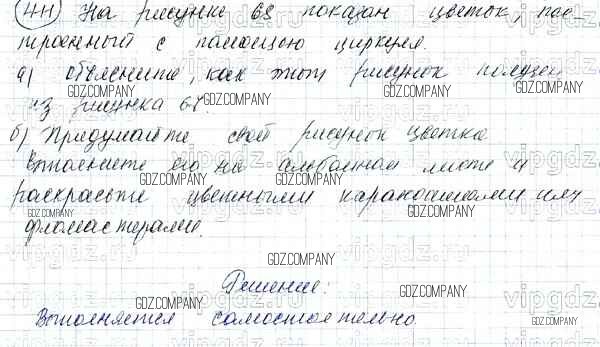 411 На рисунке 68 показан цветок, пос-
троенный с помощью циркуля.
а) Объясните, как этот рисунок получен
из рисунка 67.
б) Придумайте свой рисунок цветка
выполните его на альбомном листе и
раскрасьте цветными карандашами или
фломастерами.
Решение:
Выполняется самостоятельно.
GDZ.COMPANY
vipgdz.com